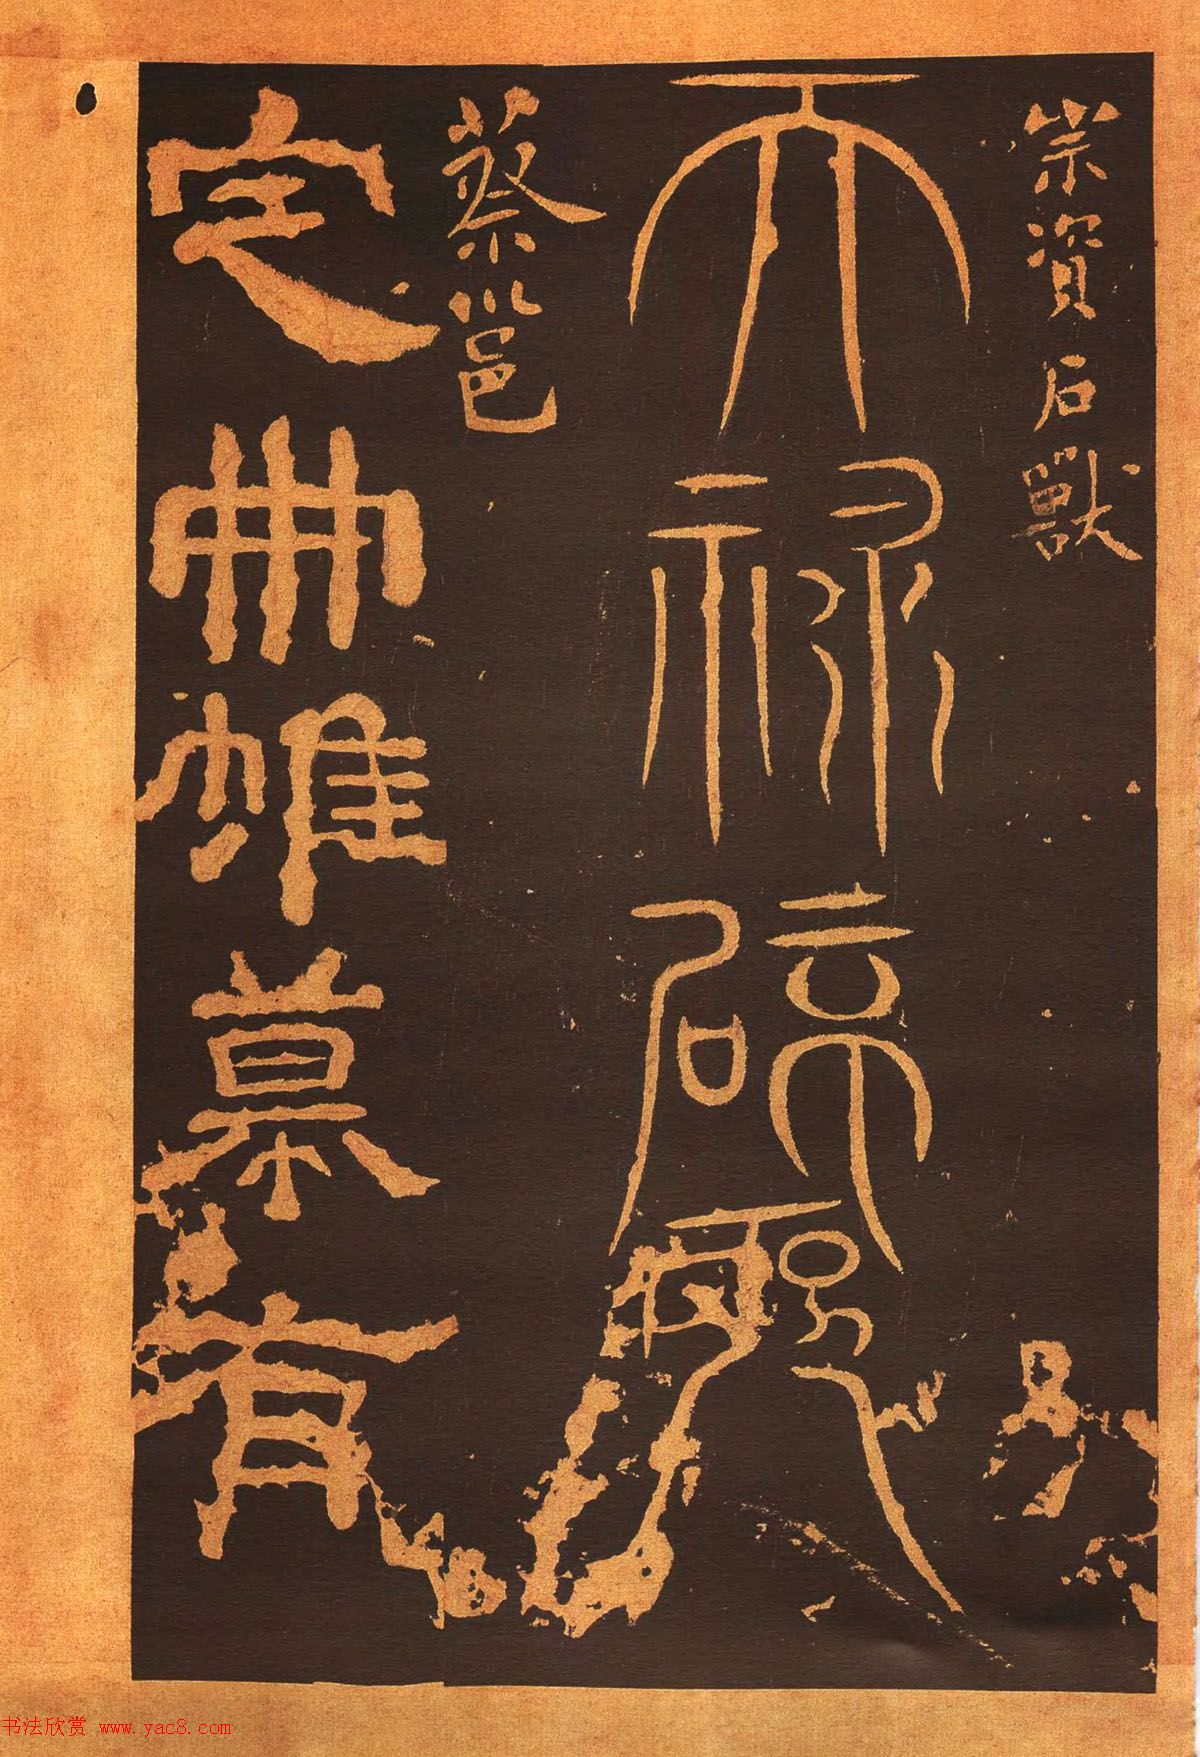 宗資石獸
天祿辟邪
蔡邕
定冊帷幕有
书法欣赏 www.yac8.com